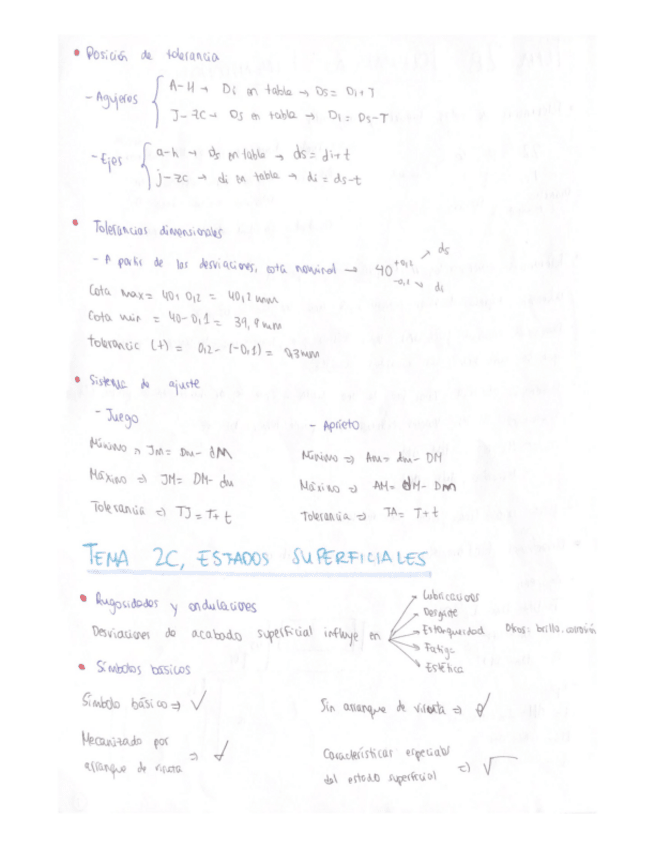 • Posición de tolerancia
- Agujeros { A-H → Di en tabla → Ds = Di+T
J-ZC → Ds en tabla → Di = Ds-T
- Ejes { a-h → ds en tabla → ds = di+t
j-zc → di en tabla → di = ds-t
• Tolerancias dimensionales
- A partir de las desviaciones, cota nominal → 40 +0,2 → ds
-0,1 → di
Cota max = 40+0,2 = 40,2 mm
Cota min = 40-0,1 = 39,9 mm
tolerancia (t) = 0,2 - (-0,1) = 0,3mm
• Sistema de ajuste
- Juego - Aprieto
Mínimo ⇒ Jm = Dm - dM Mínimo ⇒ Am = dm - DM
Máximo ⇒ JM = DM - dm Máximo ⇒ AM = dM - Dm
Tolerancia ⇒ TJ = T+t Tolerancia ⇒ TA = T+t
TEMA 2C, ESTADOS SUPERFICIALES
• Rugosidades y ondulaciones
Desviaciones de acabado superficial influye en
→ Lubricaciones
→ Desgaste
→ Estanqueidad Otros: brillo, corrosión
→ Fatiga
→ Estética
• Símbolos básicos
Símbolo básico ⇒ √ Sin arranque de viruta ⇒
Mecanizado por
arranque de viruta ⇒
Características especiales
del estado superficial ⇒ √